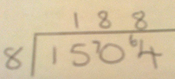 188
8 15⁷0⁶4